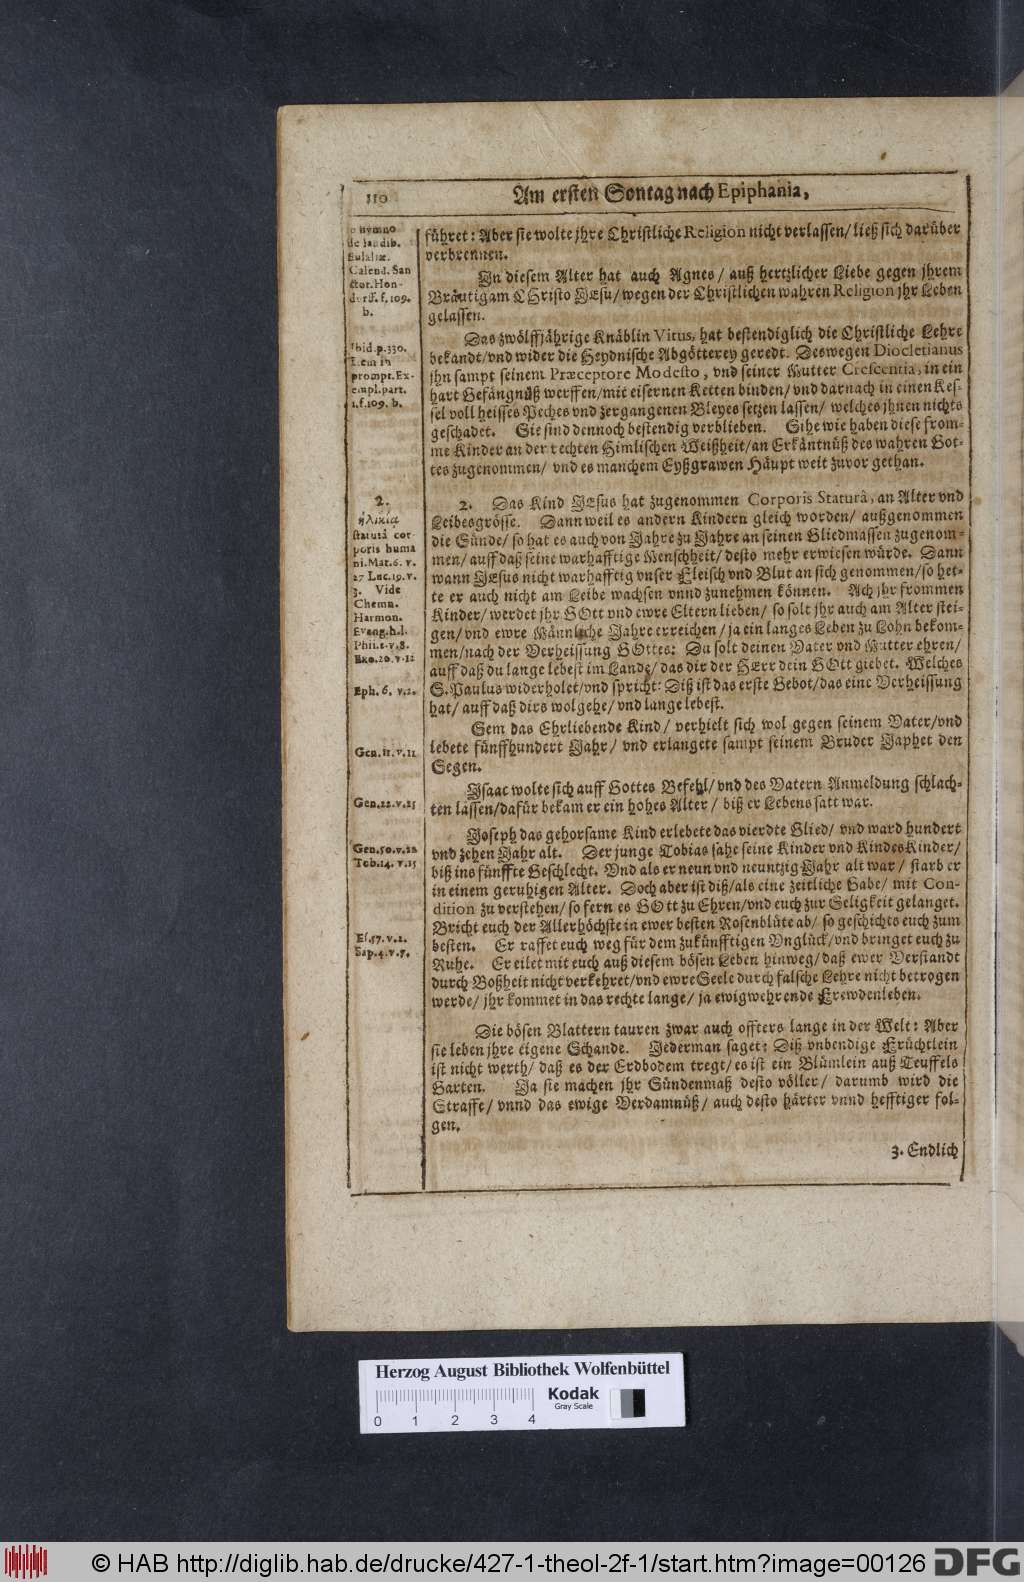 110
Am ersten Sontag nach Epiphania,
hymno
de laudib.
Eulaliæ.
Calend. San
ctor. Hon-
dorff. f. 109.
b.
führet: Aber sie wolte jhre Christliche Religion nicht verlassen/ ließ sich darüber
verbrennen.
In diesem Alter hat auch Agnes/ auß hertzlicher Liebe gegen jhrem
Bräutigam CHristo JEsu/ wegen der Christlichen wahren Religion jhr Leben
gelassen.
Ibid. p. 330.
Item in
prompt. Ex-
empl. part.
1. f. 109. b.
Das zwölffjährige Knäblin Vitus, hat bestendiglich die Christliche Lehre
bekandt/ vnd wider die Heydnische Abgötterey geredt. Deswegen Diocletianus
jhn sampt seinem Præceptore Modesto, vnd seiner Mutter Crescentia, in ein
hart Gefängnüß werffen/ mit eisernen Ketten binden/ vnd darnach in einen Kes-
sel voll heisses Peches vnd zergangenen Bleyes setzen lassen/ welches jhnen nichts
geschadet. Sie sind dennoch bestendig verblieben. Sihe wie haben diese from-
me Kinder an der rechten Himlischen Weißheit/ an Erkäntnüß des wahren Got-
tes zugenommen/ vnd es manchem Eyßgrawen Häupt weit zuvor gethan.
2.
ἡλικίᾳ
staturâ cor
poris huma
ni. Mat. 6. v.
27 Luc. 19. v.
3. Vide
Chemn.
Harmon.
Evang. h. l.
Phil. 2. v. 8.
Exo. 20. v. 12
Eph. 6. v. 2.
2. Das Kind JEsus hat zugenommen Corporis Staturâ, an Alter vnd
Leibesgrösse. Dann weil es andern Kindern gleich worden/ außgenommen
die Sünde/ so hat es auch von Jahre zu Jahre an seinen Gliedmassen zugenom-
men/ auff daß seine warhafftige Menschheit/ desto mehr erwiesen würde. Dann
wann JEsus nicht warhafftig vnser Fleisch vnd Blut an sich genommen/ so het-
te er auch nicht am Leibe wachsen vnnd zunehmen können. Ach jhr frommen
Kinder/ werdet jhr GOtt vnd ewre Eltern lieben/ so solt jhr auch am Alter stei-
gen/ vnd ewre Männliche Jahre erreichen/ ja ein langes Leben zu Lohn bekom-
men/ nach der Verheissung GOttes: Du solt deinen Vater vnd Mutter ehren/
auff daß du lange lebest im Lande/ das dir der HErr dein GOtt giebet. Welches
S. Paulus widerholet/ vnd spricht: Diß ist das erste Gebot/ das eine Verheissung
hat/ auff daß dirs wolgehe/ vnd lange lebest.
Gen. 11. v. 11
Sem das Ehrliebende Kind/ verhielt sich wol gegen seinem Vater/ vnd
lebete fünffhundert Jahr/ vnd erlangete sampt seinem Bruder Japhet den
Segen.
Gen. 22. v. 25
Isaac wolte sich auff Gottes Befehl/ vnd des Vatern Anmeldung schlach-
ten lassen/ dafür bekam er ein hohes Alter/ biß er Lebens satt war.
Gen. 50. v. 22
Tob. 14. v. 15
Joseph das gehorsame Kind erlebete das vierdte Glied/ vnd ward hundert
vnd zehen Jahr alt. Der junge Tobias sahe seine Kinder vnd Kindes Kinder/
biß ins fünffte Geschlecht. Vnd als er neun vnd neuntzig Jahr alt war/ starb er
in einem geruhigen Alter. Doch aber ist diß/ als eine zeitliche Gabe/ mit Con-
dition zu verstehen/ so fern es GOtt zu Ehren/ vnd euch zur Seligkeit gelanget.
Bricht euch der Allerhöchste in ewer besten Rosenblüte ab/ so geschichts euch zum
besten. Er raffet euch weg für dem zukünfftigen Vnglück/ vnd bringet euch zu
Ruhe. Er eilet mit euch auß diesem bösen Leben hinweg/ daß ewer Verstandt
durch Boßheit nicht verkehret/ vnd ewre Seele durch falsche Lehre nicht betrogen
werde/ jhr kommet in das rechte lange/ ja ewigwehrende Frewdenleben.
Es. 57. v. 2.
Sap. 4. v. 7.
Die bösen Blattern tauren zwar auch offters lange in der Welt: Aber
sie leben jhre eigene Schande. Jederman saget: Diß vnbendige Früchtlein
ist nicht werth/ daß es der Erdbodem tregt/ es ist ein Blümlein auß Teuffels
Garten. Ja sie machen jhr Sündenmaß desto völler/ darumb wird die
Straffe/ vnnd das ewige Verdamnüß/ auch desto härter vnnd hefftiger fol-
gen.
3. Endlich
Herzog August Bibliothek Wolfenbüttel
Kodak
Gray Scale
0 1 2 3 4
© HAB http://diglib.hab.de/drucke/427-1-theol-2f-1/start.htm?image=00126
DFG